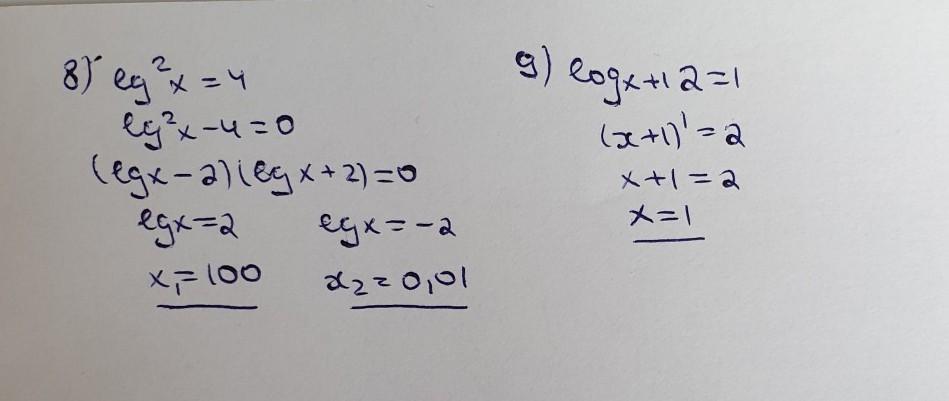 8) lg²x = 4
lg²x - 4 = 0
(lgx - 2)(lgx + 2) = 0
lgx = 2 lgx = -2
x₁ = 100 x₂ = 0,01
9) logx+1 2 = 1
(x+1)¹ = 2
x + 1 = 2
x = 1